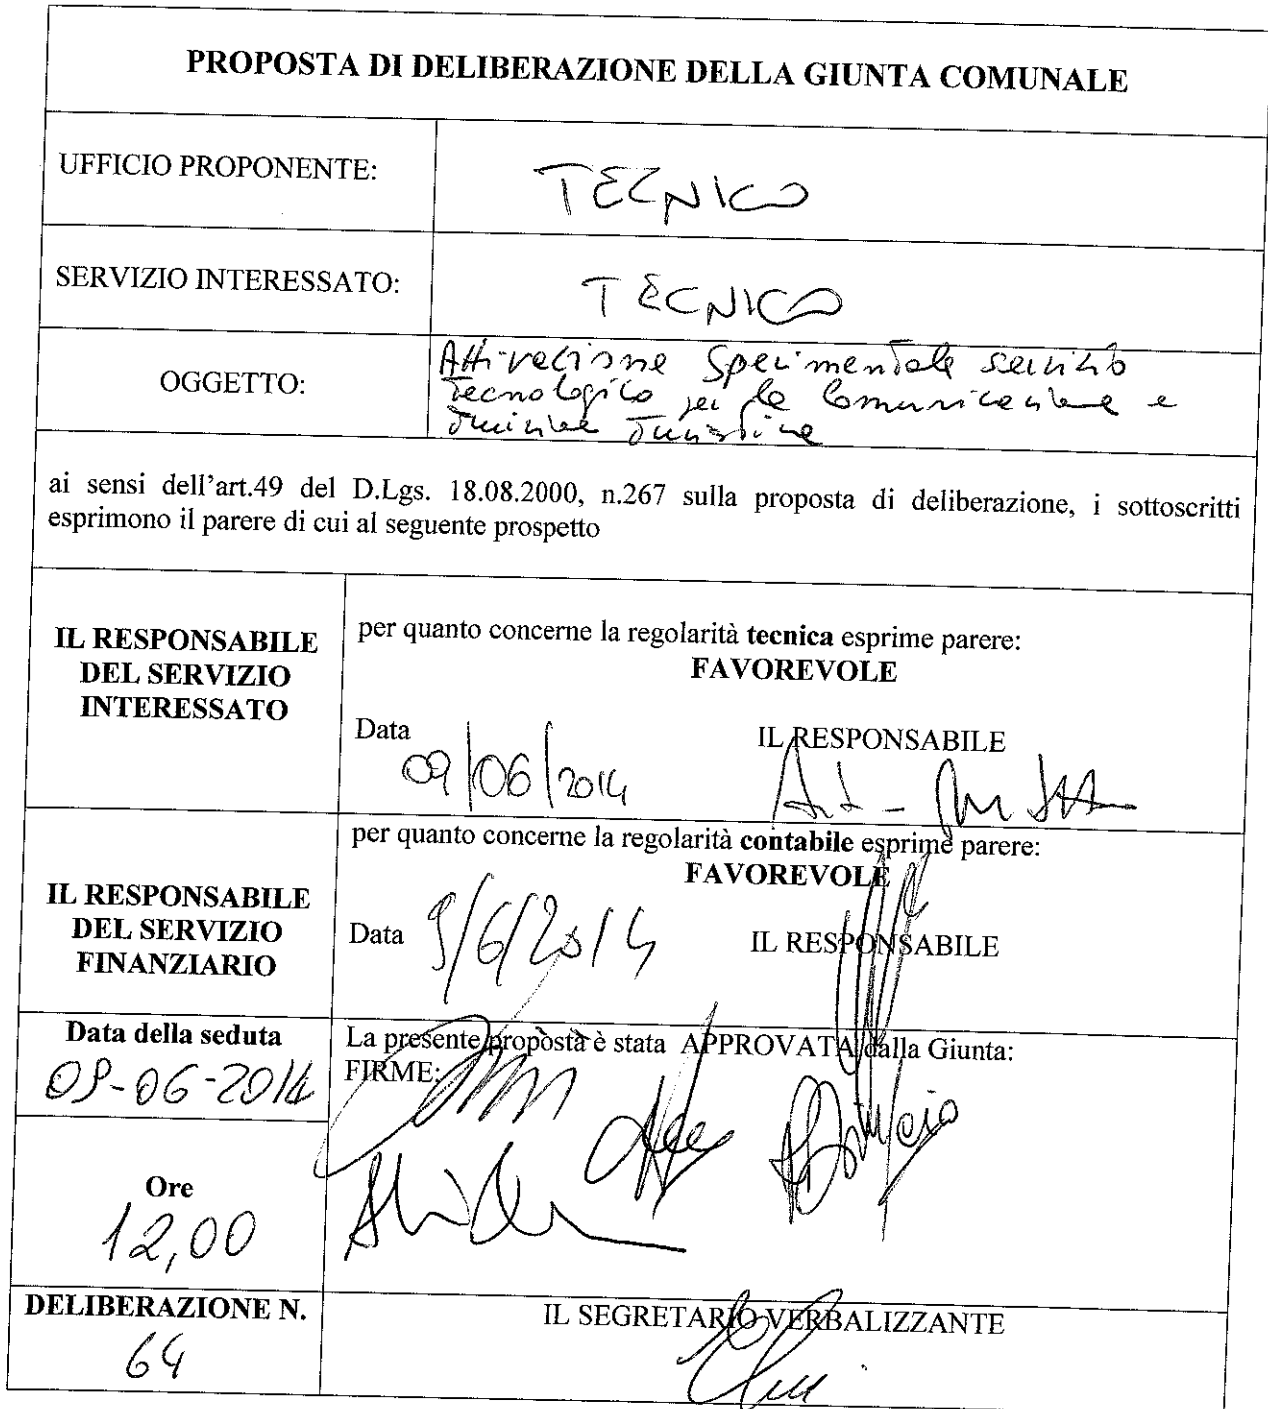 PROPOSTA DI DELIBERAZIONE DELLA GIUNTA COMUNALE
UFFICIO PROPONENTE:
TECNICO
SERVIZIO INTERESSATO:
TECNICO
OGGETTO:
Attivazione Sperimentale servizio
tecnologico per la comunicazione e
ai sensi dell'art.49 del D.Lgs. 18.08.2000, n.267 sulla proposta di deliberazione, i sottoscritti
esprimono il parere di cui al seguente prospetto
IL RESPONSABILE
DEL SERVIZIO
INTERESSATO
per quanto concerne la regolarità tecnica esprime parere:
FAVOREVOLE
Data
IL RESPONSABILE
09/06/2014
per quanto concerne la regolarità contabile esprime parere:
FAVOREVOLE
IL RESPONSABILE
DEL SERVIZIO
FINANZIARIO
Data 9/6/2014
IL RESPONSABILE
Data della seduta
09-06-2014
La presente proposta è stata APPROVATA dalla Giunta:
FIRME:
Ore
12,00
DELIBERAZIONE N.
64
IL SEGRETARIO VERBALIZZANTE